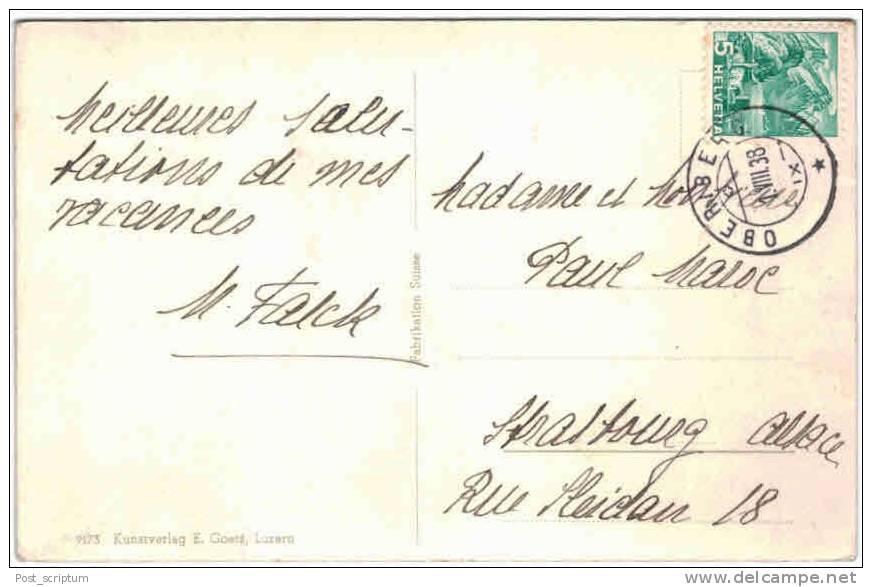 Meilleures Salu-
tations de mes
vacances
M. Falck
Fabrikation Suisse
9173 Kunstverlag E. Goetz, Luzern
5
HELVETIA
VIII.38
XI
Madame et Monsieur
Paul Maroc
Strasbourg Alsace
Rue Sleidan 18
Post_scriptum
www.delcampe.net